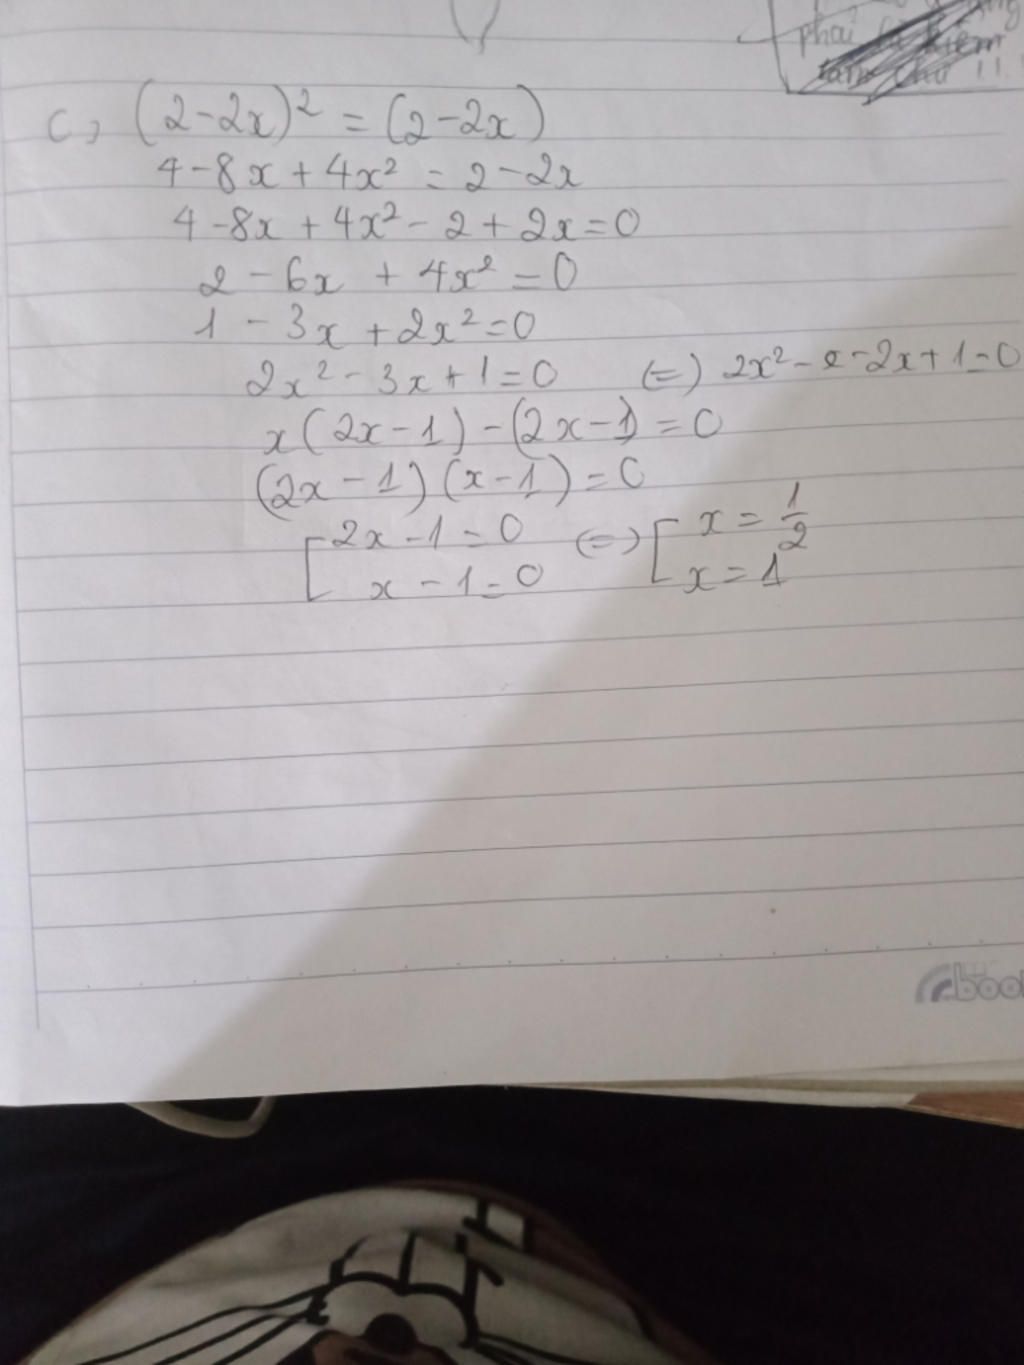 phải là kiểm
tâm chứ !!
c, (2-2x)² = (2-2x)
4-8x+4x² = 2-2x
4-8x+4x²-2+2x=0
2-6x+4x²=0
1-3x+2x²=0
2x²-3x+1=0 (=) 2x²-x-2x+1=0
x(2x-1)-(2x-1)=0
(2x-1)(x-1)=0
[2x-1=0 (=) [x=1/2
x-1=0 x=1